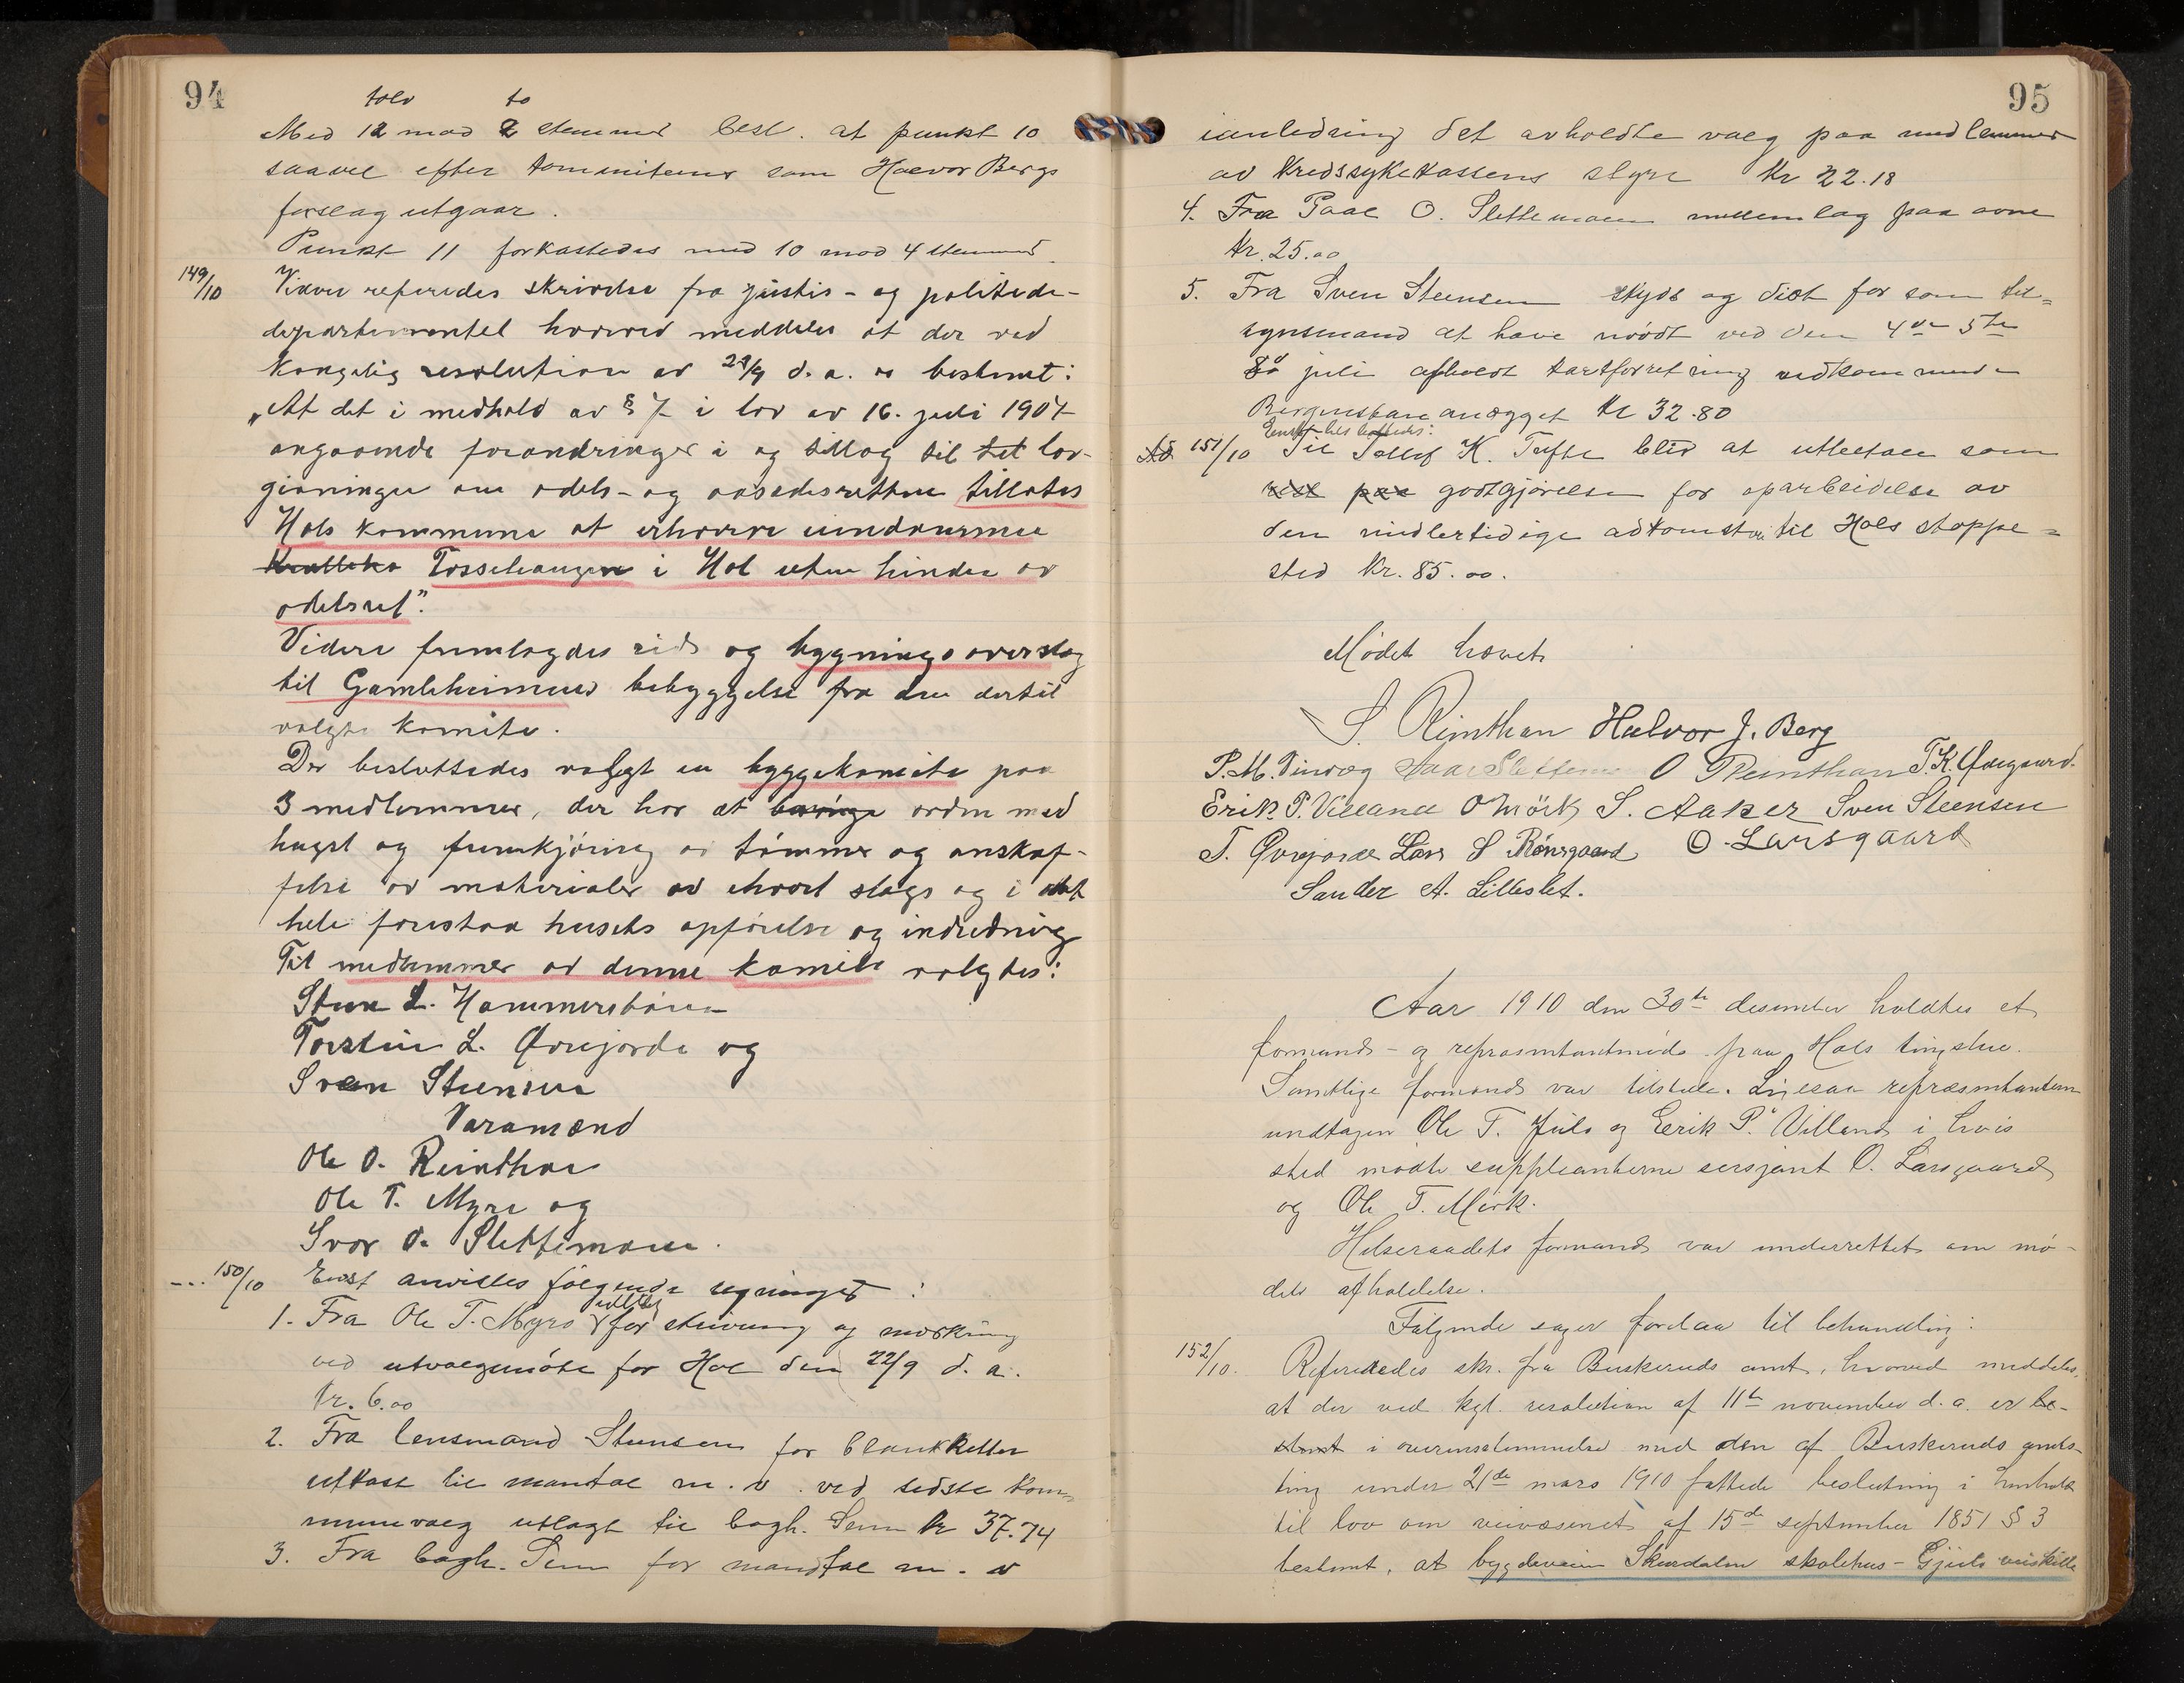 94
tolv to
Med 12 mod 2 stemmer besl. at punkt 10
saavel efter kommiteens som Halvor Bergs
forslag utgaar.
Punkt 11 forkastedes med 10 mod 4 stemmer.
149/10 Videre refereredes skrivelse fra justis- og politide-
departementet hvorved meddeles at der ved
kongelig resolution av d. a. er bestemt:
„At det i medhold av § 7 i lov av 16. juli 1907
angaaende forandringer i og tillæg til lov-
givningen om odels- og aasædesretten tillates
Hols kommune at erhverve eiendommen
Tossehaugen i Hol uten hinder av
odelsret".
Videre fremlagdes rids og bygningsoverslag
til Gamleheimens bebyggelse fra den dertil
valgte komite.
Der besluttedes valgt en byggekomite paa
3 medlemmer, der har at besørge orden med
hugst og fremkjøring av tømmer og anskaf-
felse av materialer av ethvert slags og i det
hele forestaa husets opførelse og indredning
Til medlemmer av denne komite valgtes:
Sten L. Hammersbøen
Torstein L. Øvrejorde og
Sven Steensen
Varamænd
Ole O. Reinthon
Ole T. Myro og
Ivar O. Slettemoen.
150/10 Enst anvistes følgende regninger:
1. Fra Ole T. Myro utlæg for skrivning og
ved utvalgsmøte for Hol den 22/9 d. a.
Kr. 6.00
2. Fra lensmand Steensen for blanketter
utkast til mandtal m. v. ved sidste kom-
munevalg utlagt til bogh. Senn kr 37.74
3. Fra bogh. Senn for mandtal m. v
95
ianledning det avholdte valg paa medlemmer
av kredssykekassens styre Kr 22.18
4. Fra Paal O. Slettemoen mellemlag paa ovne
Kr. 25.00
5. Fra Sven Steensen skyds og diæt for som til=
synsmand at have møødt ved den 4de 5te
8de juli afholdt takstforretning vedkommende
Bergensbaneanlægget Kr 32.80
Enst besluttedes:
Ad 151/10 Til Tollef K. Tufte blir at utbetale som
rest paa godtgjørelse for oparbeidelse av
den midlertidige adkomstvei til Hols stoppe=
sted Kr. 85.00.
Mødet hævet.
S. Rinthan Halvor J. Berg
P. M. Tinvæg Paal Slettemoen O Reinthon T. K. Øvregaard.
Erik P. Villand O Mørk S. Aaker Sven Steensen
T. Øvrejorde Lars S Rønsgaard O. Larsgaard
Sander A. Lilleslet.
Aar 1910 den 30te desember holdtes et
formands- og repræsentantmøde paa Hols tingstue.
Samtlige formænd var tilstede. Ligesaa repræsentanterne
undtagen Ole T. Juls og Eerik P. Villand i hvis
sted mødte suppleanterne sersjant O. Larsgaard
og Ole T. Mørk.
Helseraadets formand var underrettet om mø-
dets afholdelse.
Følgende sager forelaa til behandling:
152/10. Refereredes skr. fra Buskeruds amt, hvorved meddeles,
at der ved kgl. resolution af 11te november d. a. er be-
stemt i overensstemmelse med den af Buskeruds amts-
ting under 21de mars 1910 fattede beslutning i henhold
til lov om veivæsenet af 15de september 1851 § 3
bestemt, at bygdeveien Skurdalen skolehus - Gjeilo veiskille